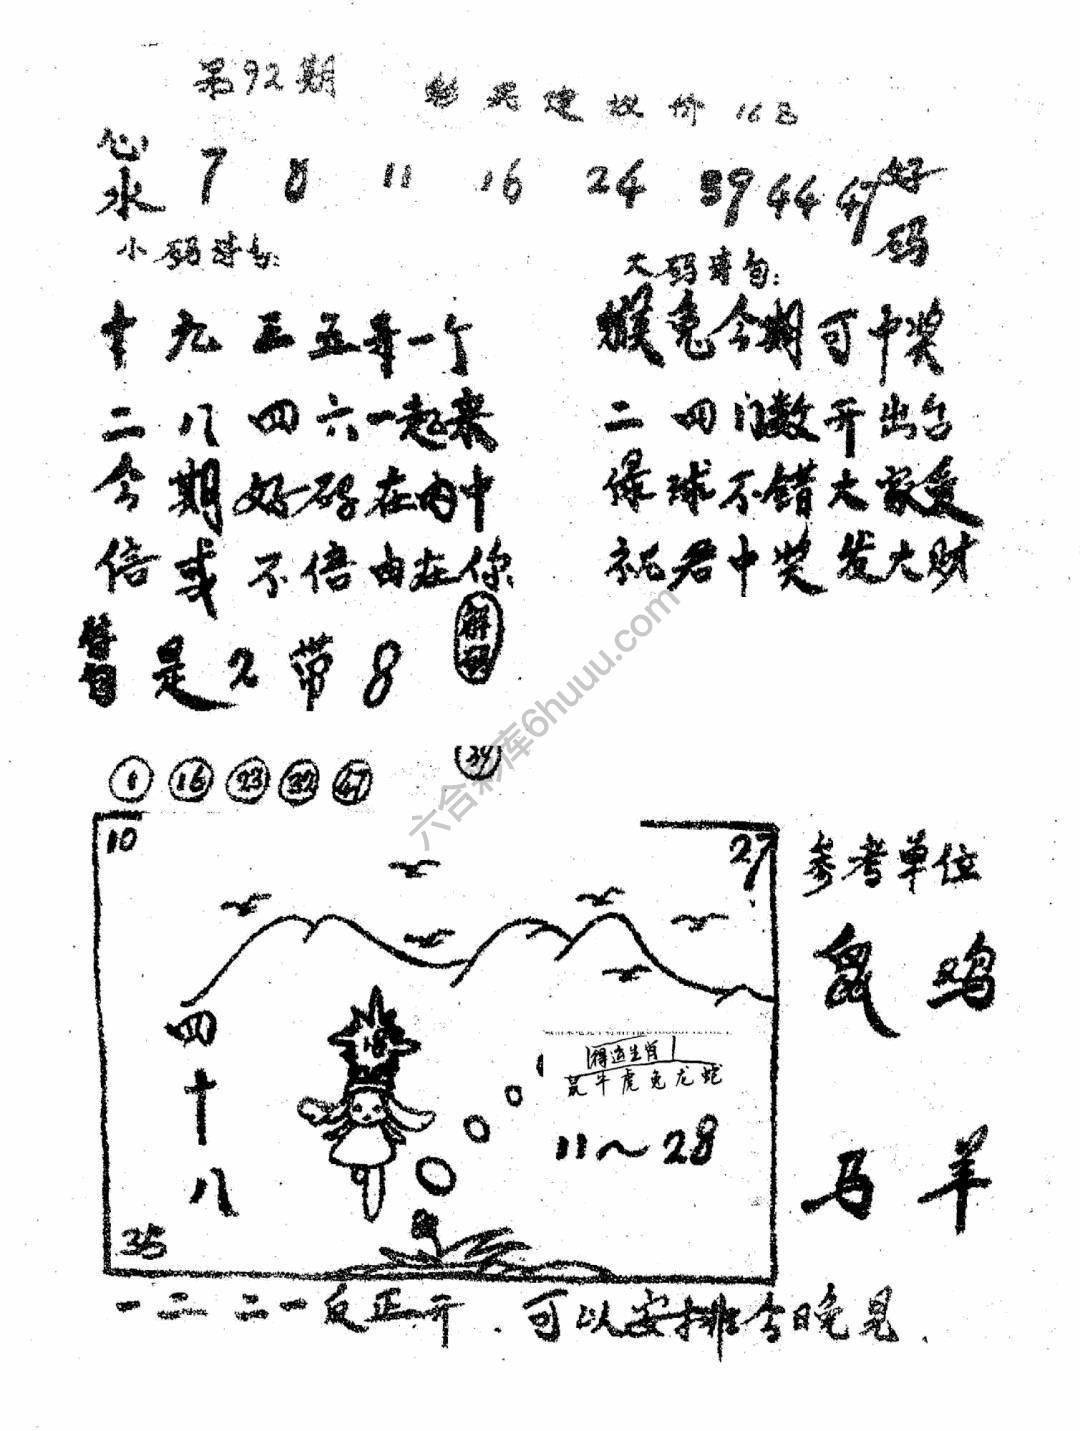 第92期
建议价16
心水 7 8 11 16 24 39 44 47 好码
小码诗句:
大码诗句:
十九三五寻一个
猴兔今期可中奖
二八四六一起来
二四门数开出台
今期好码在内中
绿球不错大家爱
信或不信由在你
祝君中奖发大财
是2带8
解码
1 16 23 32 47
34
10
27
参考单位
鼠 鸡
马 羊
四十八
18
得运生肖
鼠牛虎兔龙蛇
11～28
35
一二 二一反正开.可以安排今晚见.
六合彩库6huuu.com